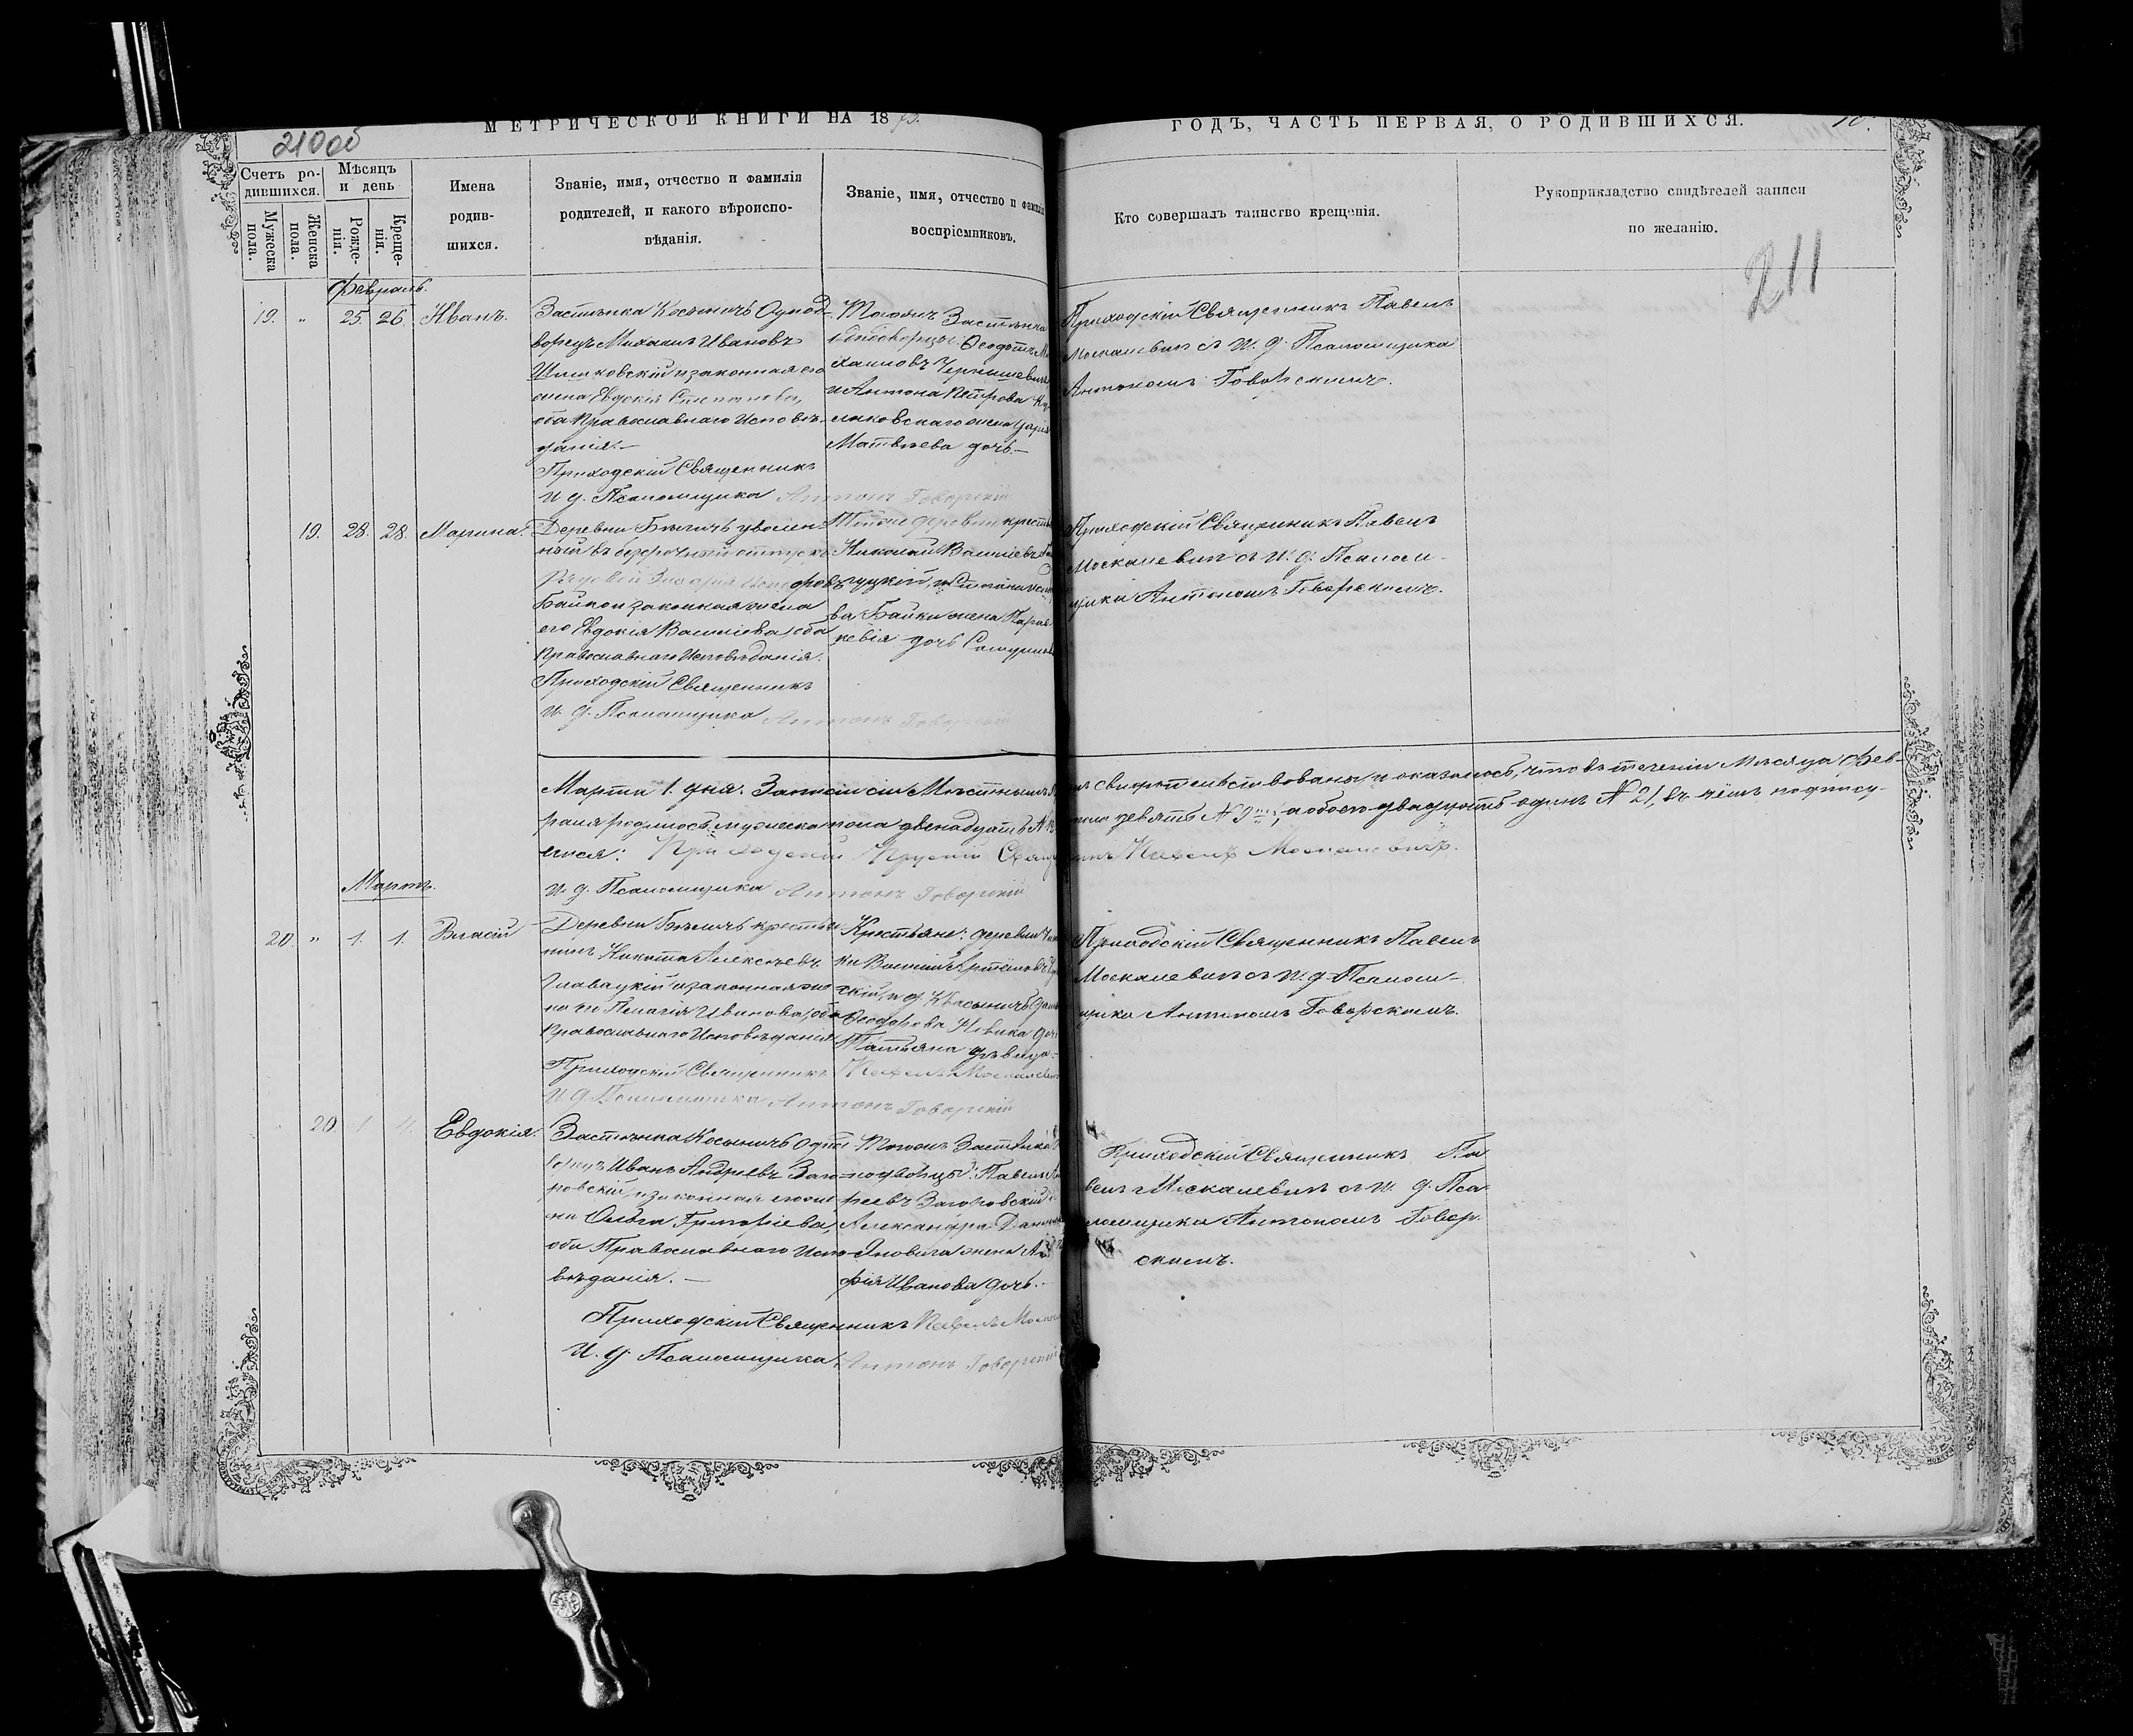 210об
МЕТРИЧЕСКОЙ КНИГИ НА 1873.
ГОДЪ, ЧАСТЬ ПЕРВАЯ, О РОДИВШИХСЯ.
211
Счетъ ро-
дившихся.
Мужеска
пола.
Женска
пола.
Мѣсяцъ
и день
Рожде-
нія.
Креще-
нія.
Имена
родив-
шихся.
Званіе, имя, отчество и фамилія
родителей, и какого вѣроиспо-
вѣданія.
Званіе, имя, отчество и фамилія
воспріемниковъ.
Кто совершалъ таинство крещенія.
Рукоприкладство свидѣтелей записи
по желанію.
Февраль.
19. „ 25. 26. Иванъ.
Застѣнка Косыничъ Однод-
ворецъ Михаилъ Ивановъ
и законная его
жена Евдокія Степанова,
оба Православнаго Исповѣ-
данія.—
Приходскій Священникъ
И. д. Псаломщика Антонъ Говорскій
Застѣнка
Ѳеодотъ Ми-
хаиловъ
и Антона Петрова
жена Дарія
Матвѣева дочь.—
Приходскій Священникъ Павелъ
Москалевичъ съ И. д. Псаломщика
Антономъ Говорскимъ.
19. 28. 28. Марина.
Деревни Бѣличъ уволен-
ный въ безсрочный отпускъ
Рядовой Захарія
Байко и законная жена
его Евдокія Василіева, оба
Православнаго Исповѣданія.
Приходскій Священникъ
И. д. Псаломщика Антонъ Говорскій
Тойже деревни
Николай Василіевъ
ва Байки жена Парас-
кевія дочь
Приходскій Священникъ Павелъ
Москалевичъ съ И. д. Псалом-
щика Антономъ Говорскимъ.
Марта 1. дня. Записи сіи Мѣстнымъ свидѣтельствованы и оказалось, что въ теченіи Мѣсяца Фев-
раля родилось: мужеска пола двенадцать № 12 девять № 9, а обоего двадцать одинъ № 21, въ чёмъ подпису-
емся: Приходскій Священникъ Павелъ Москалевичъ.
И. д. Псаломщика Антонъ Говорскій
Мартъ.
20. „ 1. 1. Власій
Деревни Бѣличъ крестья-
нинъ Никита Алексѣевъ
Главацкій и законная же-
на его Пелагія Иванова, оба
Православнаго Исповѣданія
Приходскій Священникъ Павелъ Москалевичъ
И. д. Псаломщика Антонъ Говорскій
Крестьяне: деревни
Василій Артёмовъ
Ѳеодорова Новика дочь
Татьяна дѣвица.—
Приходскій Священникъ Павелъ
Москалевичъ съ И. д. Псалом-
щика Антономъ Говорскимъ.
20. 1. 4. Евдокія.
Застѣнка Косыничъ Одно-
ворецъ Иванъ Андреевъ Заго-
ровскій, и законная его же-
на Ольга Григоріева,
оба Православнаго Испо-
вѣданія.—
Приходскій Священникъ Павелъ
И. д. Псаломщика Антонъ Говорскій
Тогожъ Застѣнка
нодворцы: Павелъ Анд-
реевъ Загоровскій и
Александра
жена
Иванова дочь.—
Приходскій Священникъ Па-
велъ Москалевичъ съ И. д. Пса-
ломщика Антономъ Говор-
скимъ.